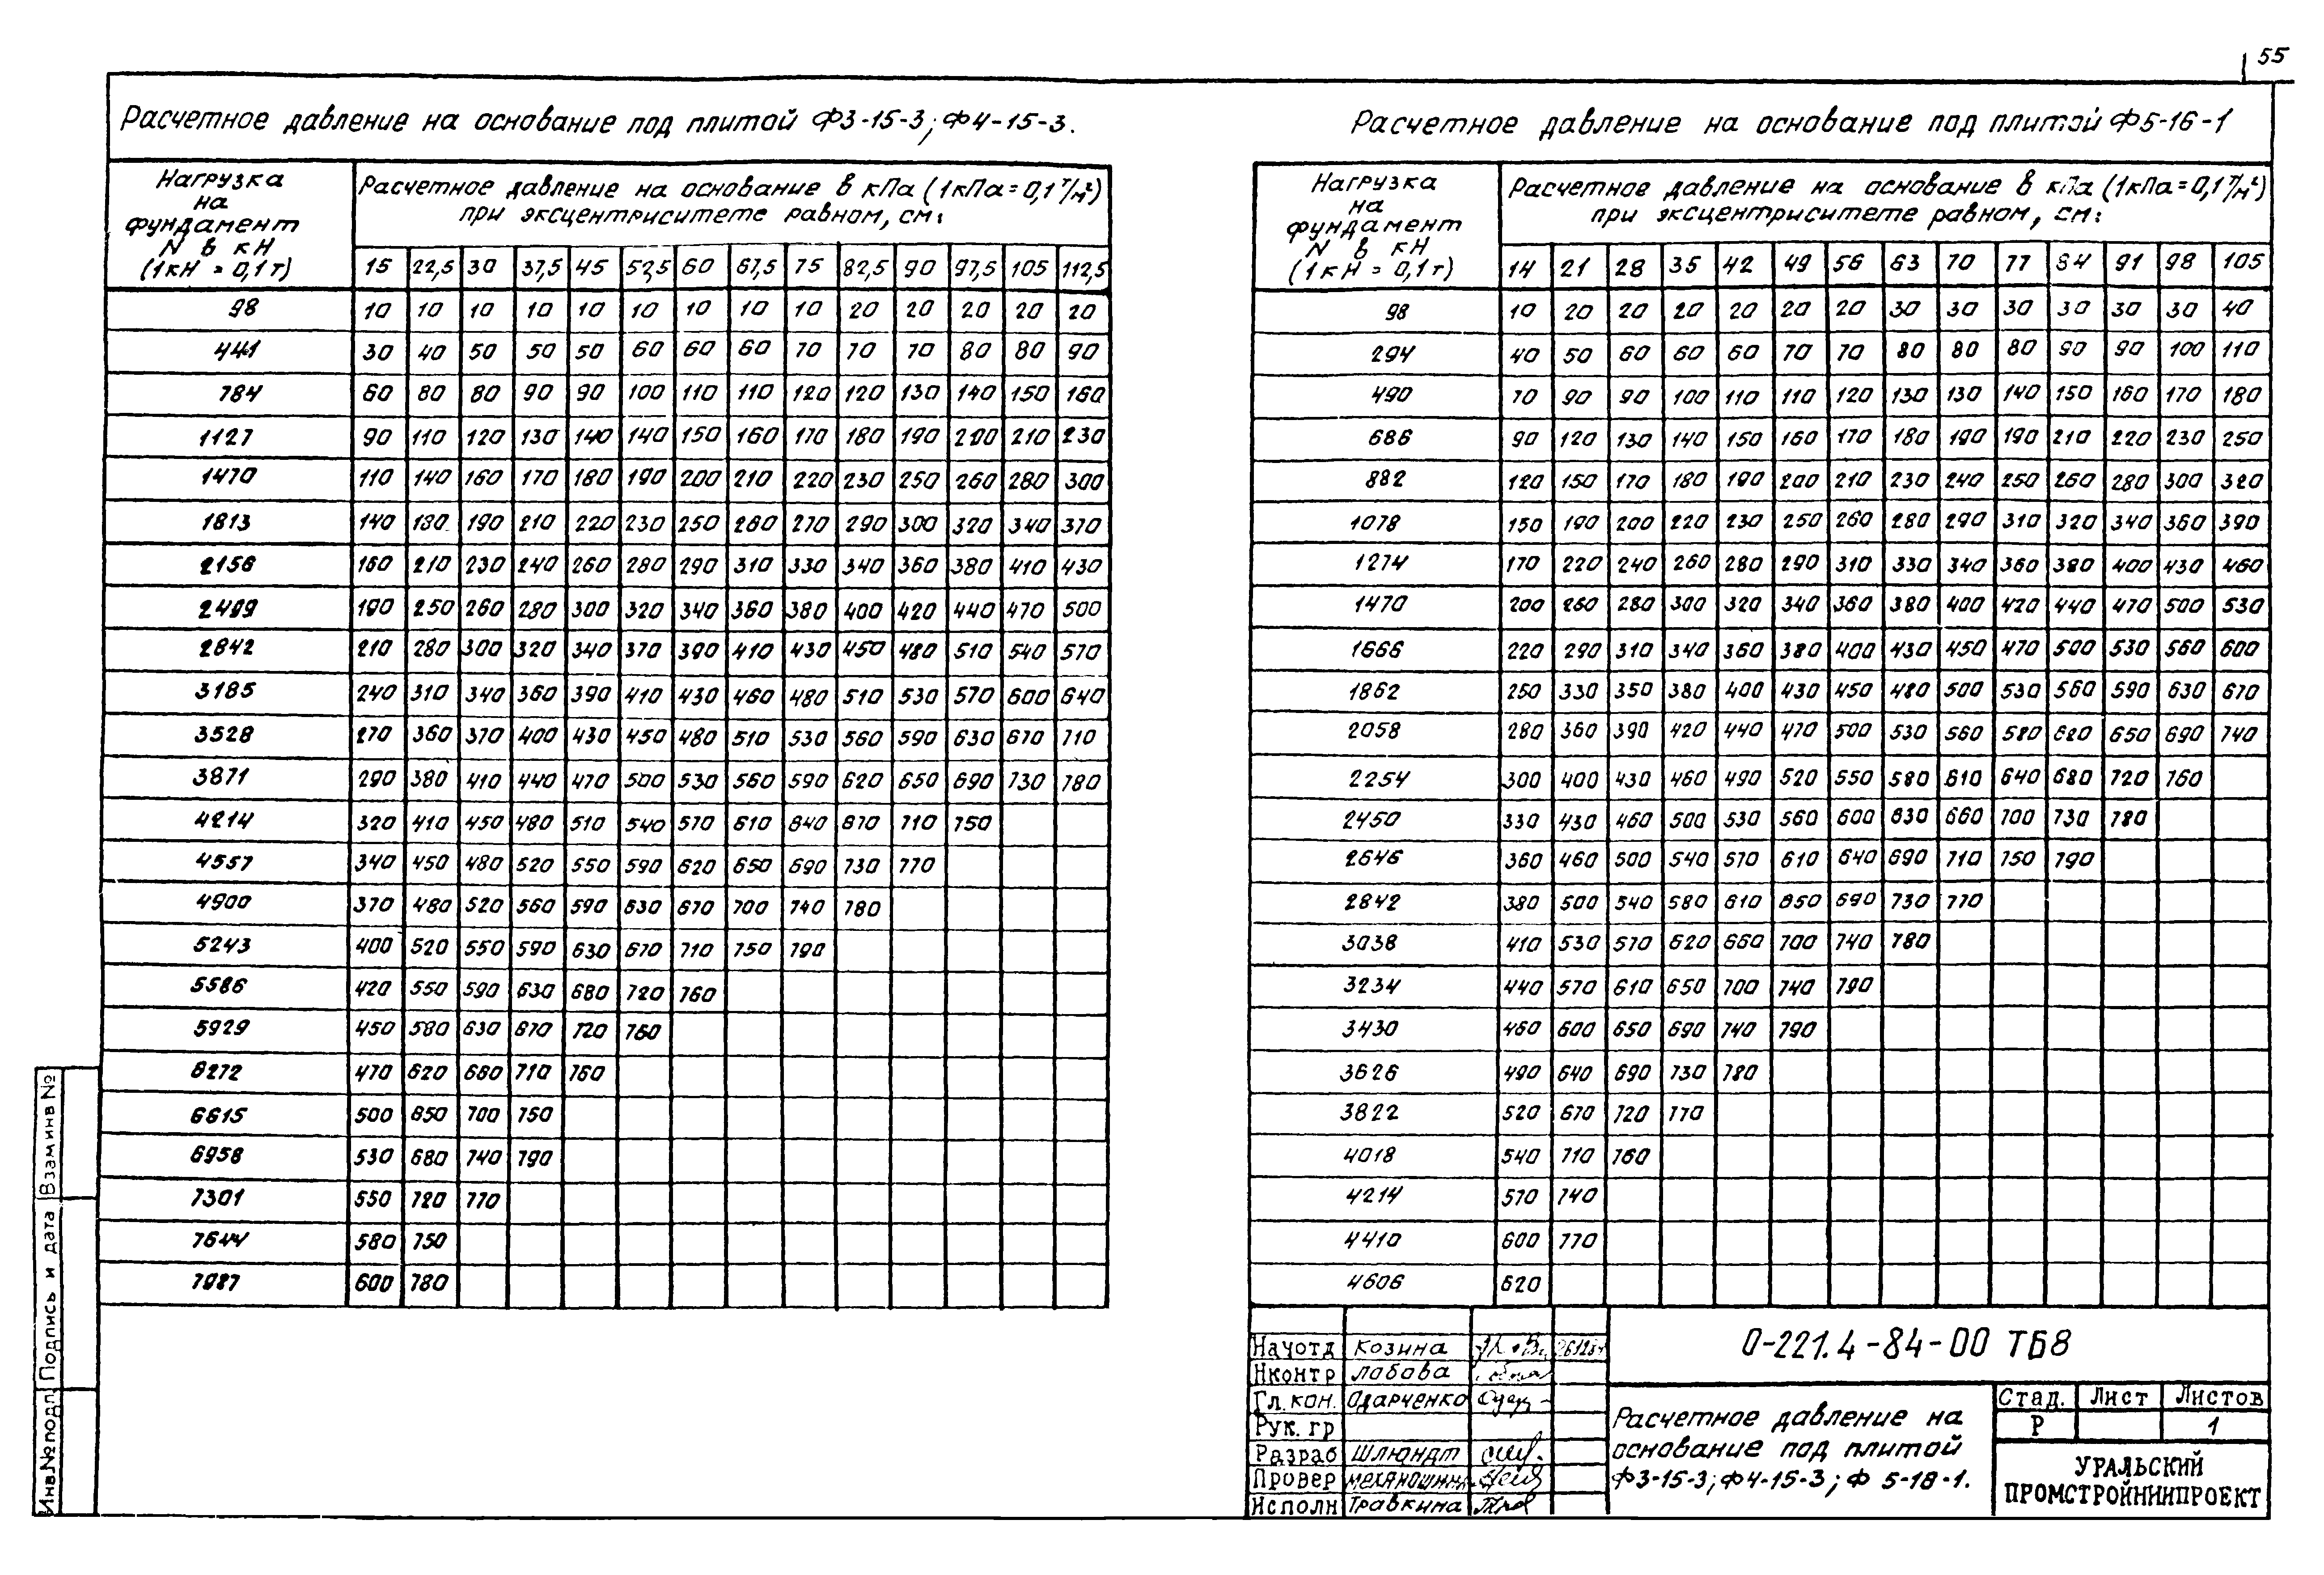 55
Расчетное давление на основание под плитой Ф3-15-3; Ф4-15-3.
Нагрузка на фундамент N в кН (1кН = 0,1т)
Расчетное давление на основание в кПа (1кПа = 0,1 т/м²)
при эксцентриситете равном, см:
15 22,5 30 37,5 45 52,5 60 67,5 75 82,5 90 97,5 105 112,5
98 10 10 10 10 10 10 10 10 10 20 20 20 20 20
441 30 40 50 50 50 60 60 60 70 70 70 80 80 90
784 60 80 80 90 90 100 110 110 120 120 130 140 150 160
1127 90 110 120 130 140 140 150 160 170 180 190 200 210 230
1470 110 140 160 170 180 190 200 210 220 230 250 260 280 300
1813 140 180 190 210 220 230 250 260 270 290 300 320 340 370
2156 160 210 230 240 260 280 290 310 330 340 360 380 410 430
2499 190 250 260 280 300 320 340 360 380 400 420 440 470 500
2842 210 280 300 320 340 370 390 410 430 450 480 510 540 570
3185 240 310 340 360 390 410 430 460 480 510 530 570 600 640
3528 270 360 370 400 430 450 480 510 530 560 590 630 670 710
3871 290 380 410 440 470 500 530 560 590 620 650 690 730 780
4214 320 410 450 480 510 540 570 610 640 670 710 750
4557 340 450 480 520 550 590 620 650 690 730 770
4900 370 480 520 560 590 630 670 700 740 780
5243 400 520 550 590 630 670 710 750 790
5586 420 550 590 630 680 720 760
5929 450 580 630 670 720 760
6272 470 620 660 710 760
6615 500 650 700 750
6958 530 680 740 790
7301 550 720 770
7644 580 750
7987 600 780
Расчетное давление на основание под плитой Ф5-16-1
Нагрузка на фундамент N в кН (1кН = 0,1т)
Расчетное давление на основание в кПа (1кПа = 0,1 т/м²)
при эксцентриситете равном, см:
14 21 28 35 42 49 56 63 70 77 84 91 98 105
98 10 20 20 20 20 20 20 30 30 30 30 30 30 40
294 40 50 60 60 60 70 70 80 80 80 90 90 100 110
490 70 90 90 100 110 110 120 130 130 140 150 160 170 180
686 90 120 130 140 150 160 170 180 190 190 210 220 230 250
882 120 150 170 180 190 200 210 230 240 250 260 280 300 320
1078 150 190 200 220 230 250 260 280 290 310 320 340 360 390
1274 170 220 240 260 280 290 310 330 340 360 380 400 430 460
1470 200 260 280 300 320 340 360 380 400 420 440 470 500 530
1666 220 290 310 340 360 380 400 430 450 470 500 530 560 600
1862 250 330 350 380 400 430 450 480 500 530 560 590 630 670
2058 280 360 390 420 440 470 500 530 560 580 620 650 690 740
2254 300 400 430 460 490 520 550 580 610 640 680 720 760
2450 330 430 460 500 530 560 600 630 660 700 730 780
2646 360 460 500 540 570 610 640 690 710 750 790
2842 380 500 540 580 610 650 690 730 770
3038 410 530 570 620 660 700 740 780
3234 440 570 610 650 700 740 790
3430 460 600 650 690 740 790
3626 490 640 690 730 780
3822 520 670 720 770
4018 540 710 760
4214 570 740
4410 600 770
4606 620
Взам инв №
Подпись и дата
Инв.№ подл.
Нач отд Козина
Н контр Лобова
Гл. кон. Одарченко
Рук. гр
Разраб Шлюндт
Провер
Исполн Травкина
0-221.4-84-00 ТБ8
Расчетное давление на
основание под плитой
Ф3-15-3; Ф4-15-3; Ф 5-18-1.
Стад. Лист Листов
Р 1
УРАЛЬСКИЙ
ПРОМСТРОЙНИИПРОЕКТ